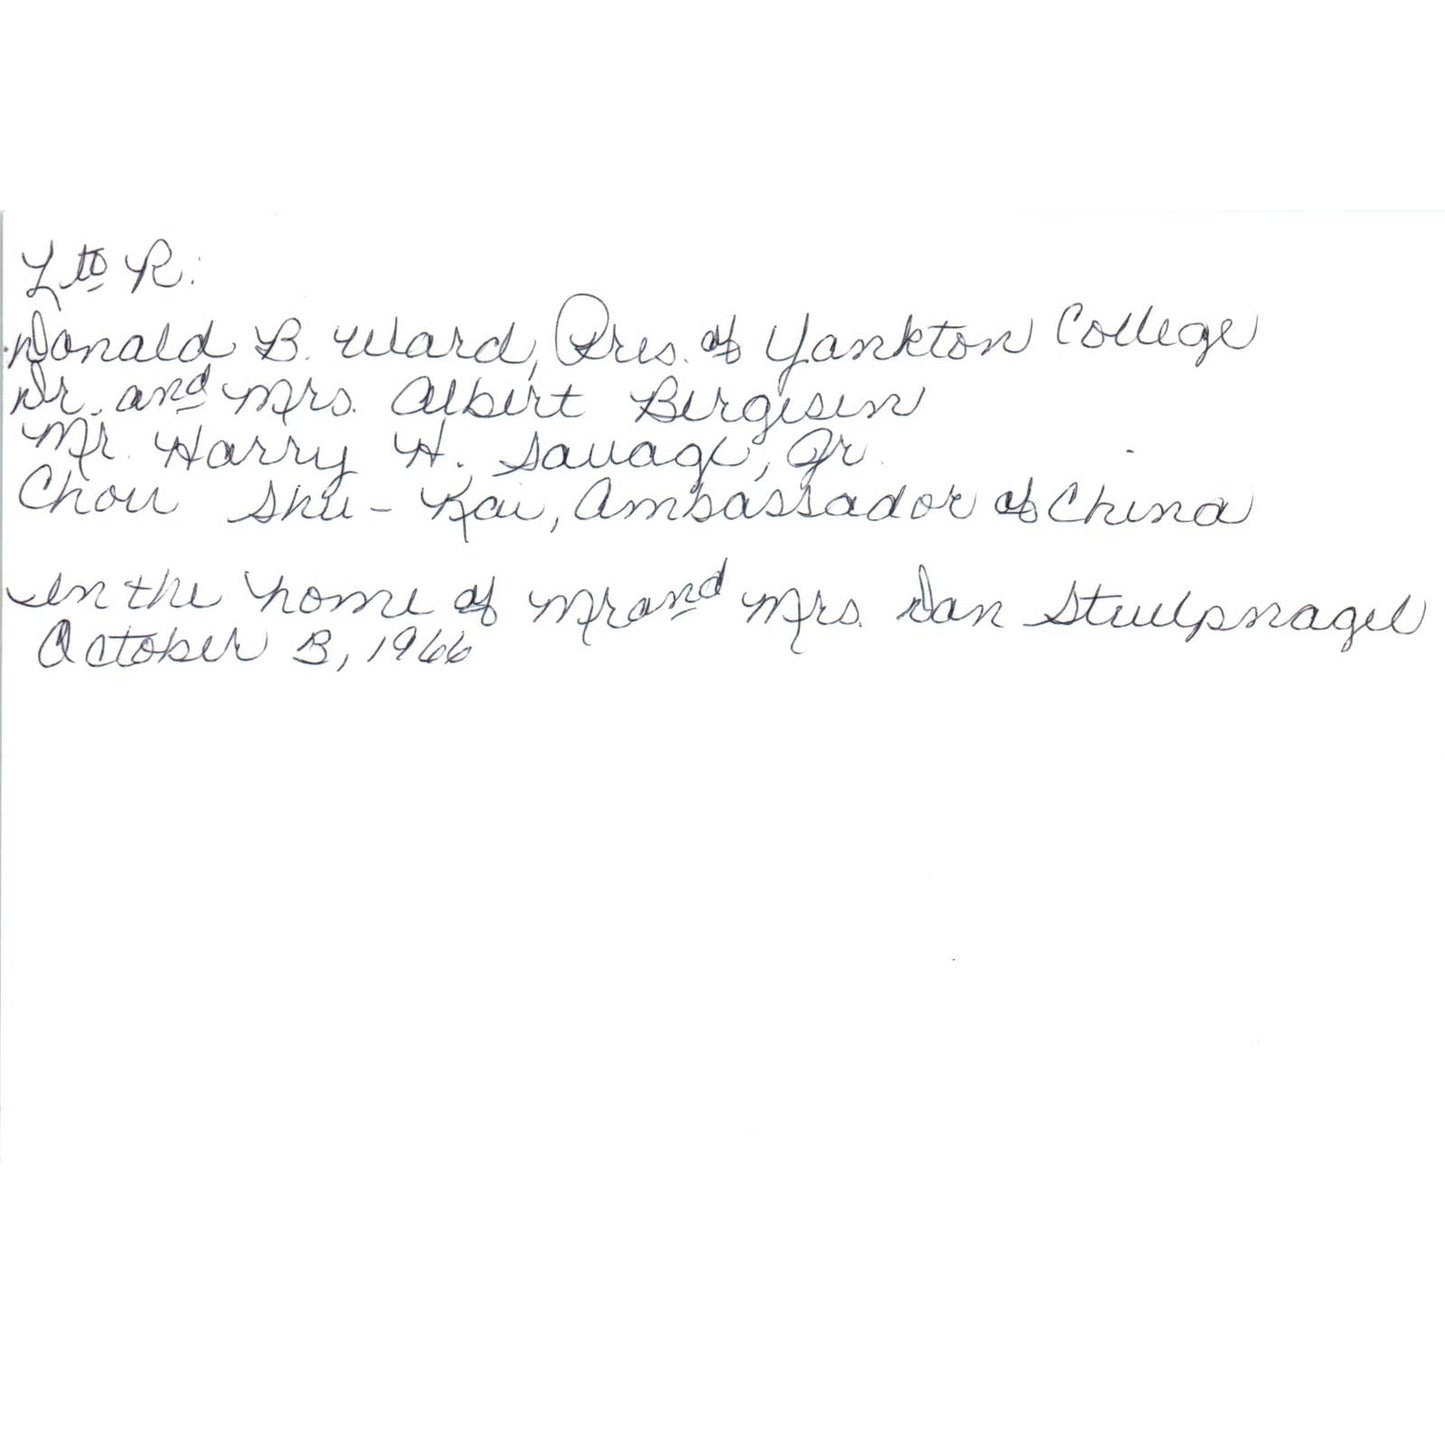 L to R:
Donald B. Ward, Pres. of Yankton College
Dr. and Mrs. Albert Bergesen
Mr. Harry H. Savage, Jr.
Chou Shu-Kai, Ambassador of China
In the home of Mr and Mrs. Dan Stuelpnagel
October 3, 1966